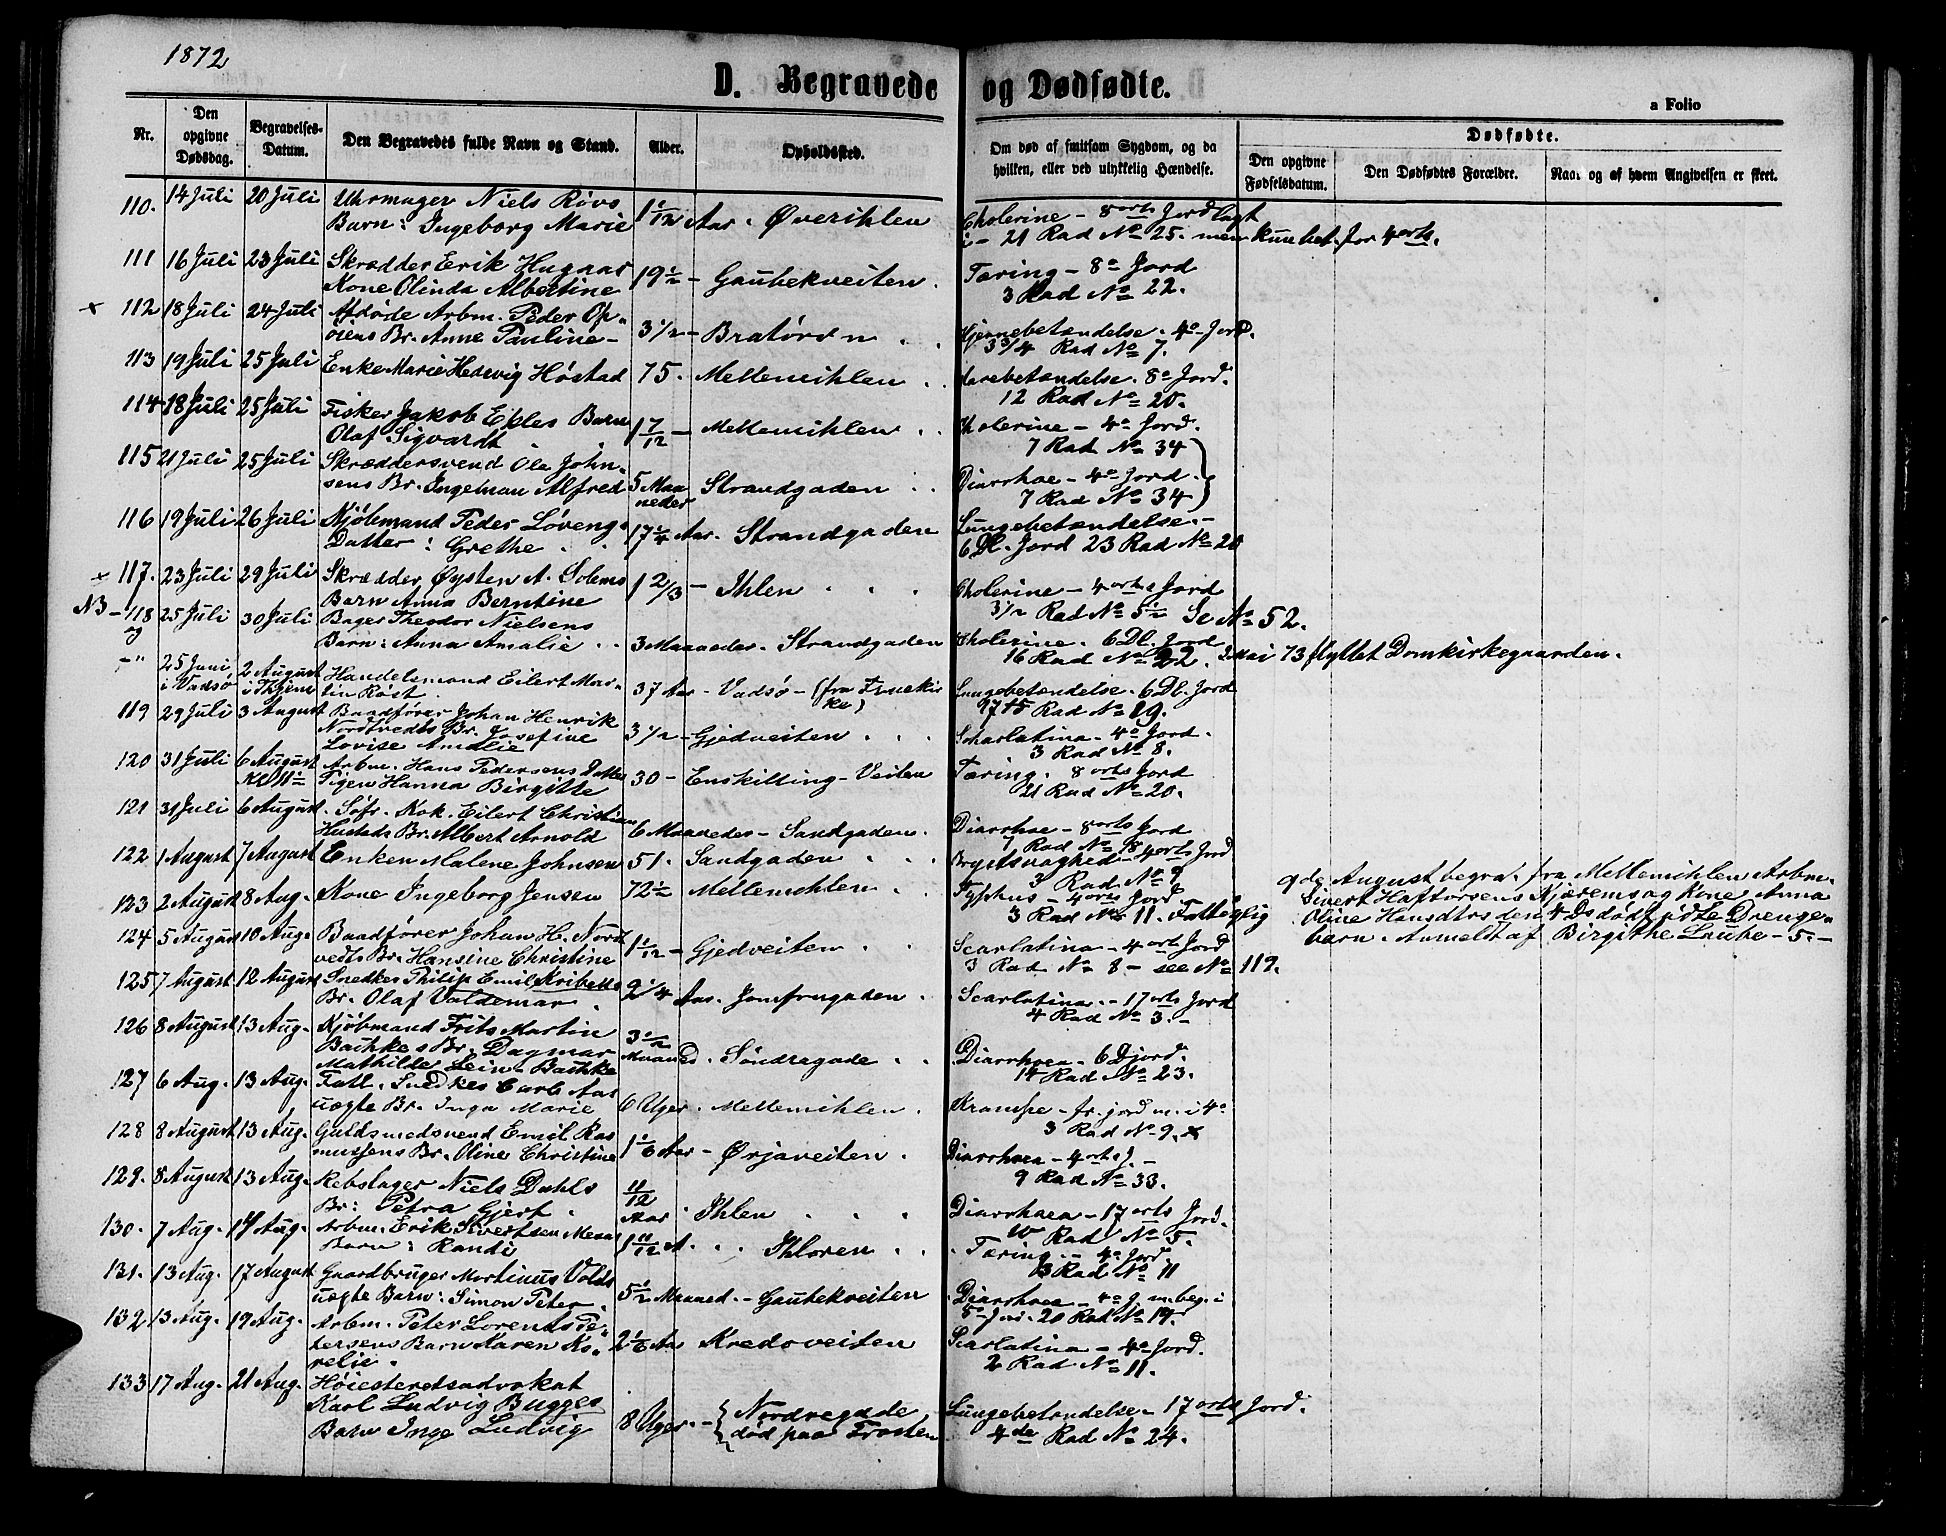 1872
D. Begravede og Dødfødte.
a Folio
Nr.
Den opgivne Dødsdag.
Begravelses-Datum.
Den Begravedes fulde Navn og Stand.
Alder.
Opholdssted.
Om død af smitsom Sygdom, og da hvilken, eller ved ulykkelig Hændelse.
Dødfødte.
Den opgivne Fødselsdatum.
Den Dødfødtes Forældre.
Naar og af hvem Angivelsen er skeet.
110. 14 Juli 20 Juli Uhrmager Niels Røvs
Barn: Ingeborg Marie 1 1/12 Aar. Øverihlen Cholerine - 8 orts Jord lagt
i - 21 Rad No 25. men kun bet. for 4 orts.
111 16 Juli 23 Juli Skrædder Erik Hugaas
Kone Olinda Albertine 19 1/2 - Gaubekveiten. Tæring - 8o Jord
3 Rad No 22.
x 112 18 Juli 24 Juli Afdøde Arbm. Peder Op-
öiens Br. Anne Pauline - 3 1/2 - Bratøren . . Hjernebetændelse. 4o Jord.
3 3/4 Rad No 7.
113 19 Juli 25 Juli Enke Marie Hedevig Höstad 75. Mellemihlen . . 8o Jord.
12 Rad No 20.
114 18 Juli 25 Juli Fisker Jakob Ekles Barn
Olaf Sigvardt 1 7/12 - Mellemihlen . . Cholerine - 4o Jord.
7 Rad No 34
115 21 Juli 25 Juli Skræddersvend Ole John-
sens Br. Ingelman Alfred 5 Maaneder Strandgaden . . Diarrhae - 4o Jord.
7 Rad No 34
116 19 Juli 26 Juli Kjöbmand Peder Løvengs
Datter: Grethe . . 17 1/4 Aar. Strandgaden Lungebetændelse. -
6 Dl. Jord 23 Rad No 20
x 117. 23 Juli 29 Juli Skrædder Øysten A. Solems
Barn Anna Berntine 1 2/3 - Ihlen . . . Cholerine - 4 orts Jord
3 1/2 Rad No 5 1/2 Se No 52.
NB - 118 25 Juli 30 Juli Bager Theodor Nielsens
og
Barn: Anna Amalie . . 3 Maaneder. Strandgaden Cholerine. 6 Dl. Jord
16 Rad No 22. 2 Mai 73 flyttet Domkirkegaarden.
-"- 25 Juni i Vadsø 2 August Handelsmand Eilert Mar-
tin Röst . 37 Aar - Vadsø - (fra Fruekirke) Lungebetændelse. 6 Dl. Jord
Rad No 19.
119 29 Juli 3 August Baadfører Johan Henrik
Nordtvedts Br. Josefine
Lovise Amalie 3 1/2 - Gjedveiten . . . Scharlatina - 4o Jord.
3 Rad No 8.
120 31 Juli 6 August Kl 11 1/2 Arbm. Hans Pedersens Datter
Pigen Hanna Birgitte 30 - Enskilling - Veiten Tæring. 8 orts Jord
21 Rad No 20.
121 31 Juli 6 August. Söfr. Kok. Eilert Christian
Hustads Br. Albert Arnold 6 Maaneder - Sandgaden. Diarrhae - 8 orts Jord
7 Rad No 18
122 1 August 7 August Enken Malene Johnsen 51. Sandgaden . . . Brystsvaghed - 4 orts Jord
3 Rad No 9
123 2 August 8 Aug. Kone Ingeborg Jensen 72 1/2 Mellemihlen . . Typhus - 4 orts Jord
3 Rad No 11. Fattiglig
9de August begra. fra Mellemihlen Arbm.
Sivert Haftorsens Kjærems og Kone Anna
Oline Hansdtrs den 4 Ds dødfødte Drenge-
barn. Anmeldt af Birgithe Laube - 5. -
124 5 August 10 Aug. Baadfører Johan H. Nort
vedts Br. Hansine Christine 1 1/12 - Gjedveiten . . Scarlatina - 4 orts Jord
3 Rad No 8 - see No 119.
125 7 August 12 August Snedker Philip Emil Kribells
Br. Olaf Valdemar . 2 1/4 Aar. Jomfrugaden . Scarlatina. - 17 orts Jord
4 Rad No 3. -
126 8 August 13 Aug. Kjöbmand Frits Martin
Bachkes Br. Dagmar
Mathilde Lein Bachke 3 1/2 Maaned. Söndregade . . Diarrhoea - 6 D jord.
14 Rad No 23.
127 6 Aug. 13 Aug. Fatl. Snedker Carl Aas
uægte Br. Inga Marie 6 Uger. Mellemihlen. Krampe - fr. jord m. i 4o
3 Rad No 9. x
128 8 August 13 Aug. Guldsmedsvend Emil Ras
mussens Br. Oline Christine 1 1/6 Aar - Ørjaveiten . Diarrhoea - 4 orts J. -
9 Rad No 33.
129. 8 August 13 Aug. Rebslager Niels Dahls
Br: Petra Gjert . 11/12 Aar . Ihlen . . . Diarrhoea - 17 orts Jord.
10 Rad No 5.
130. 7 Aug. 14 Aug. Arbm. Erik Sivertsen Mesa
Barn: Randi 1 11/12 A. . . Ihloren . . . Tæring. - 4o Jord.
13 Rad No 11
131. 13 Aug. 17 August Gaardbruger Martinus Volds
uægte Barn: Simon Peter. 5 1/2 Maaned. - Gaubekveiten . Diarrhoea - 4o J. m. beg. i
8o Jor. 20 Rad No 14.
132 13 Aug. 19 Aug. Arbm. Peter Lorents Pe-
tersens Barn Karen Ko-
relie. 2 1/6 Aar Kredoveiten Scarlatina - 4o Jord.
2 Rad No 11.
133 17 Aug. 21 Aug. Höiesteretsadvokat
Karl Ludvig Bugges
Barn Inge Ludvig 8 Uger. - { Nordregade
død paa Frosten Lungebetændelse. 17 orts Jord.
4de Rad No 24.